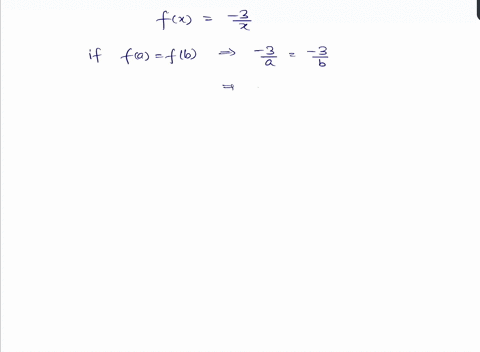 f(x) = -3/x
if f(a) = f(b) ⇒ -3/a = -3/b
⇒